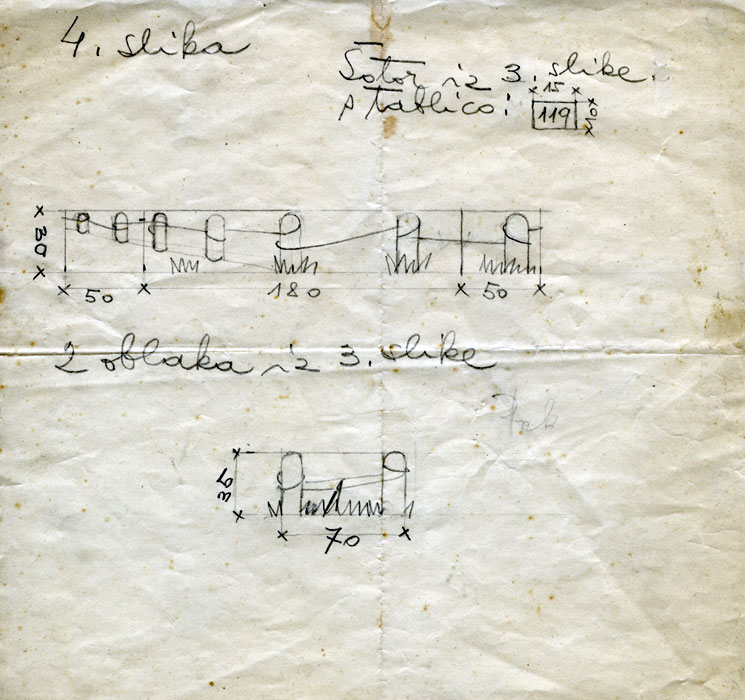 4. slika
Šotor iz 3. slike.
s tablico:
15
119
30
50
180
50
2 oblaka iz 3. slike
70